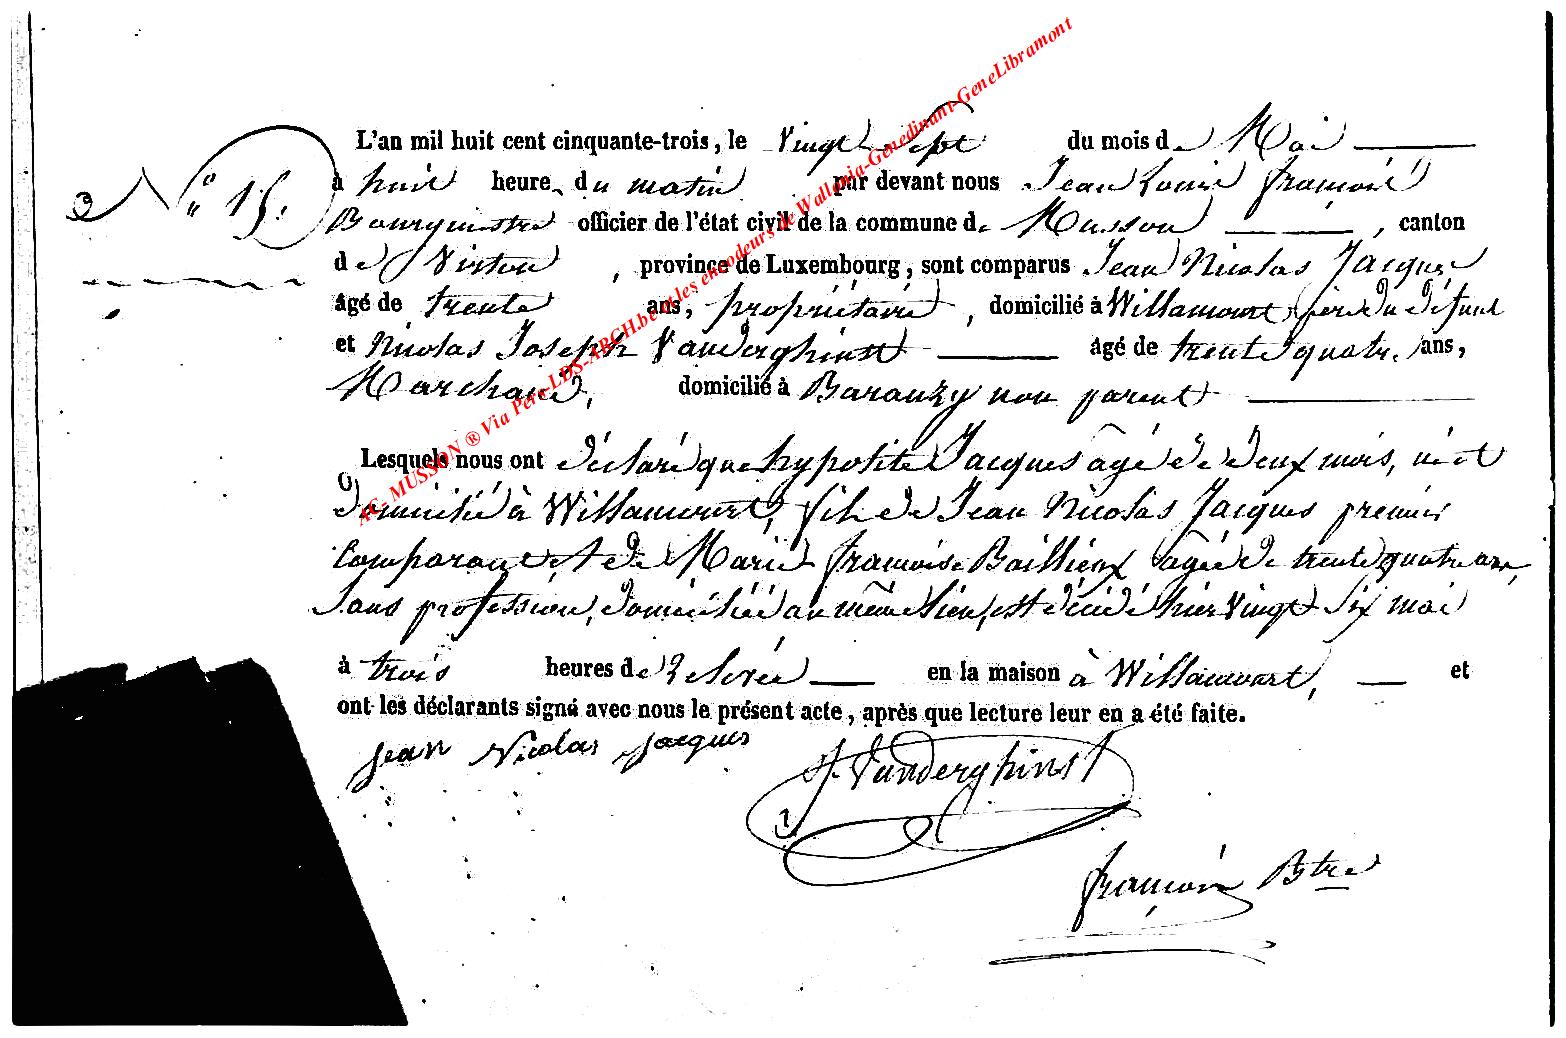 L'an mil huit cent cinquante-trois, le Vingt Sept du mois de Mai
N° 15. à huit heures du matin par devant nous Jean Louis françois
Bourgmestre officier de l'état civil de la commune de Musson, canton
de Virton, province de Luxembourg, sont comparus Jean Nicolas Jacques
âgé de trente ans, propriétaire, domicilié à Willancourt, père du défunt
et Nicolas Joseph Vanderghinst âgé de trente quatre ans,
Marchand, domicilié à Baranzy non parent
Lesquels nous ont déclaré que hypolite Jacques agé de deux mois, né et
domicilié à Willancourt, fils de Jean Nicolas Jacques premier
Comparant et de Marie françoise Baillieux agée de trente quatre ans,
Sans profession, domiciliée au même lieu, est décédé hier Vingt Six mai
à trois heures de Relevée en la maison à Willancourt, et
ont les déclarants signé avec nous le présent acte, après que lecture leur en a été faite.
Jean Nicolas Jacques
Vanderghinst
françois Btre
AG- MUSSON ® Via Pere-LDS-ARCH.be et les encodeurs de Wallonia-Genedinant-GeneLibramont